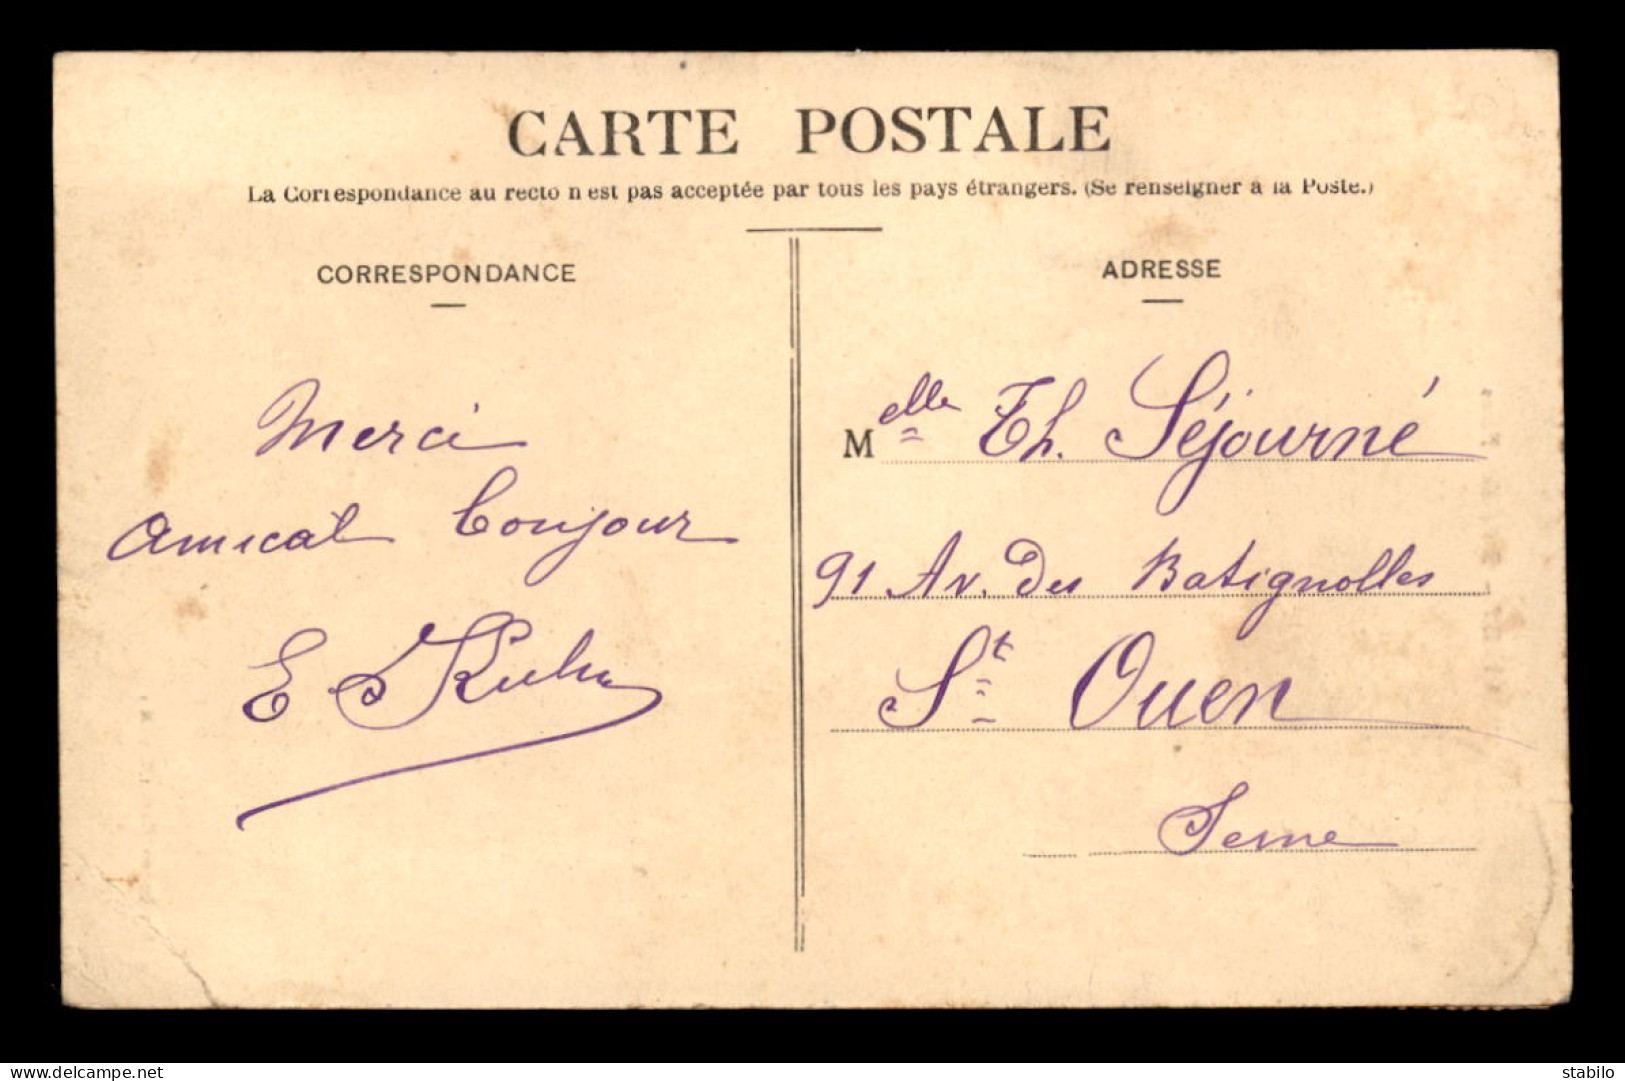 CARTE POSTALE
La Correspondance au recto n'est pas acceptée par tous les pays étrangers. (Se renseigner à la Poste.)
CORRESPONDANCE
Merci
Amical bonjour
E
ADRESSE
Melle Th. Séjourné
91 Av. des Batignolles
St. Ouen
Seine
delcampe.net
stabilo